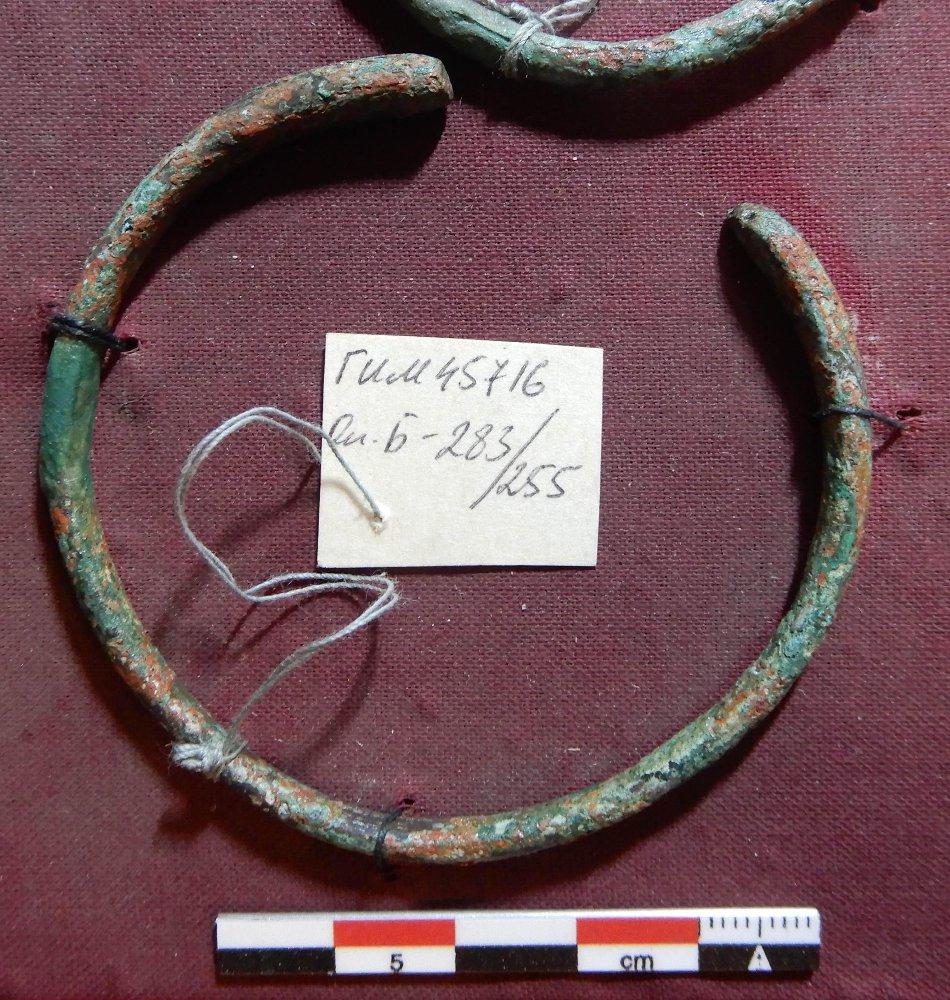 ГИМ 45716
Оп. Б-283/
/255
5 cm